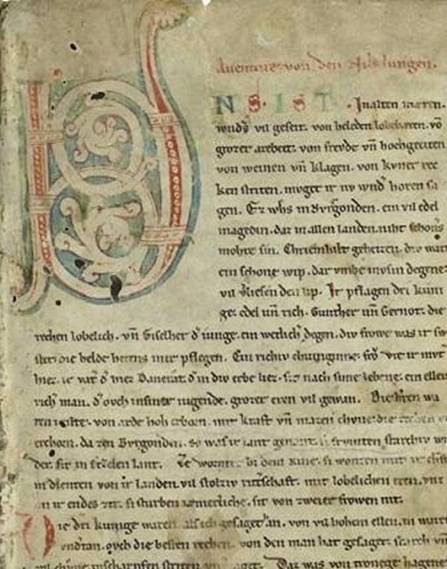 Auenture von den Nibelungen.
NS IST. In alten mæren
wnders vil geseit. von heleden lobebæren. vō
grozer arebeit. von frevde vn̄ hochgeciten
von weinen vn̄ klagen. von kvner rec
ken striten. mvget ir nv wnder horen sa
gen. Ez whs in Bvrgonden. ein vil edel
magedin. daz in allen landen. niht schoners
mohte sin. Chriemhilt geheizen. div wart
ein schone wip. dar vmbe mvsin degene
vil vliesen den lip. Ir pflagen dri kuni
ge. edel vn̄ rich. Gunther vn̄ Gernot. die
rechen lobelich. vn̄ Giselher d' iunge. ein wetlich degen. div frowe was ir sw
ster. die helde hetens inir pflegen. Ein richiv chuniginne. frō vte ir mvt
hiez. ir vat' d' hiez Dancrat. d' in div erbe liez. sit nach sime lebene. ein ellens
rich man. d' ovch in siner iugende. grozer eren vil gewan. Die herren wa
ren milte. von arde hoh erborn. mit kraft vn̄ mazen chvne. die rechen
erchorn. da zen Bvrgonden. so was ir lant genant. si frvmten starchiv wn
der. sit in etzelen lant. Ze wormz. bi dem Rine. si wonten mit ir chraft
in dienten von ir landen. vil stolziv ritterschaft. mit lobelichen eren. vnz
an ir endes zit. si sturben iæmerliche. sit von zweier frowen nit.
Die dri kunige waren. als ich gesaget han. von vil hohem ellen. in waren
vndertan. ovch die besten rechen. von den man hat gesaget. starch vn̄
vil chvne in scharpfen striten Daz was von tronege hagene